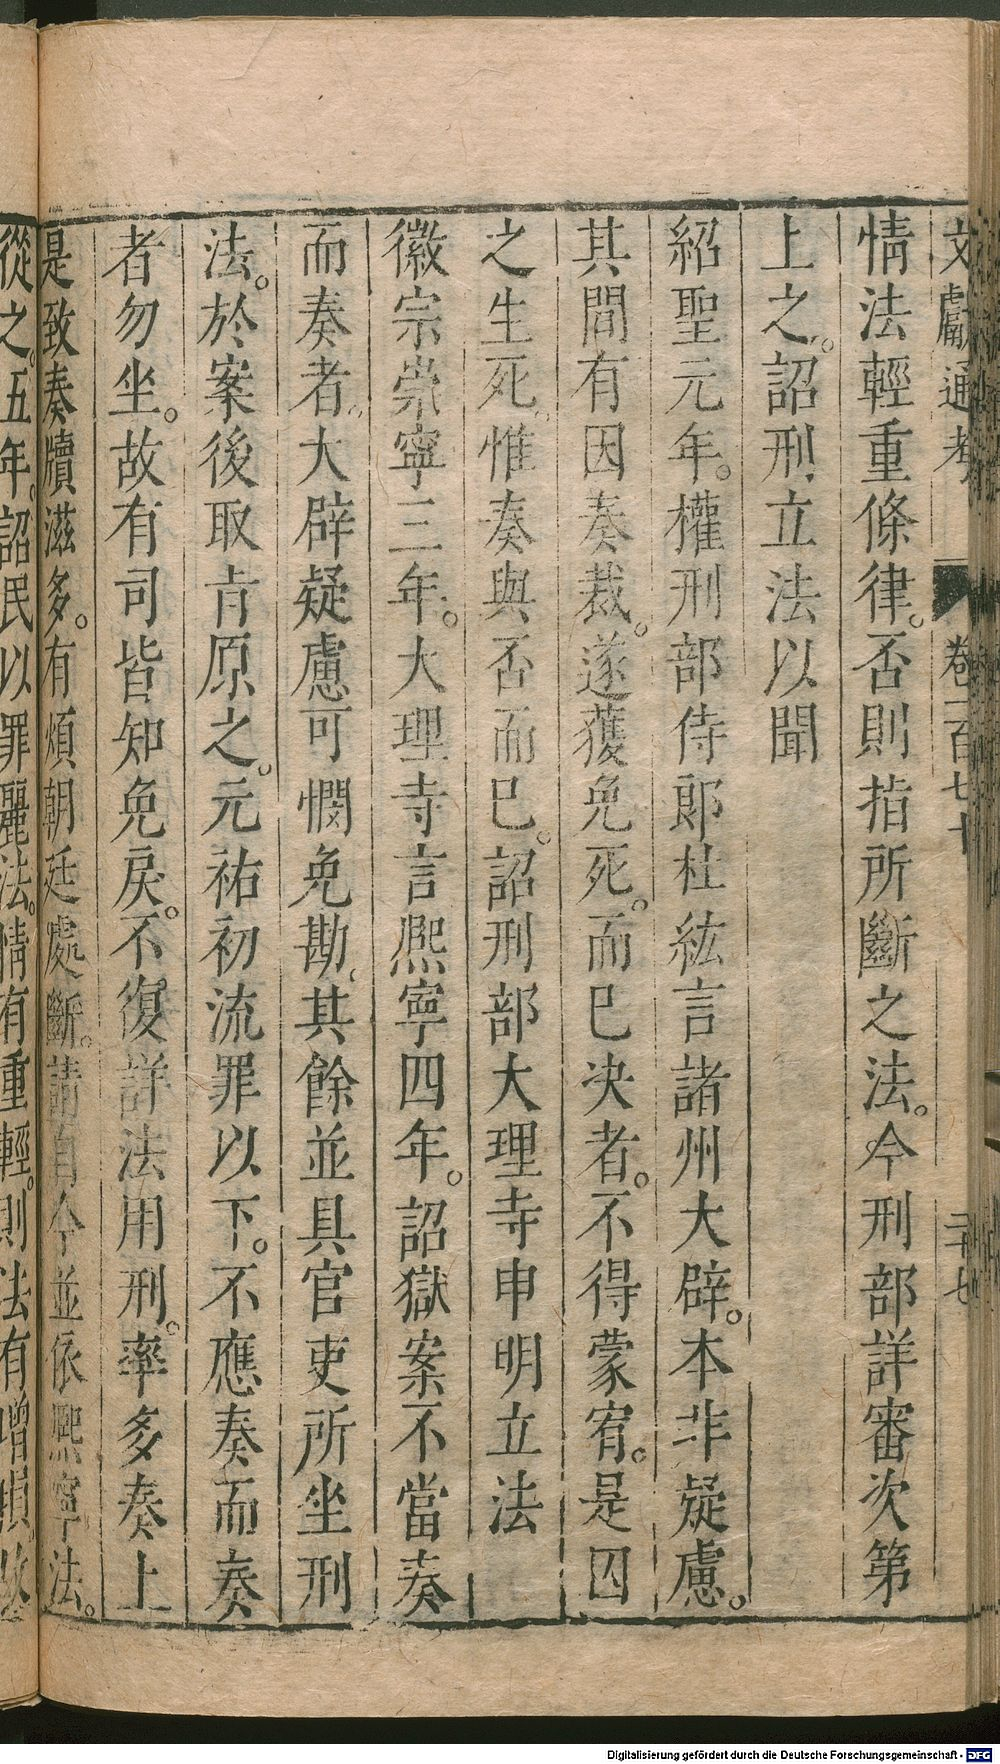 文獻通考 卷一百七十 二十七
情法輕重條律。否則指所斷之法。今刑部詳審次第
上之。詔刑立法以聞
紹聖元年。權刑部侍郎杜紘言諸州大辟。本非疑慮。
其間有因奏裁。遂獲免死。而已決者。不得蒙宥。是囚
之生死。惟奏與否而已。詔刑部大理寺申明立法
徽宗崇寧三年。大理寺言熙寧四年。詔獄案不當奏
而奏者。大辟疑慮可憫免勘。其餘並具官吏所坐刑
法。於案後取旨原之。元祐初流罪以下。不應奏而奏
者勿坐。故有司皆知免戾。不復詳法用刑。率多奏上
是致奏牘滋多。有煩朝廷處斷。請自今並依熙寧法。
從之。五年。詔民以罪麗法。情有重輕。則法有增損。故
Digitalisierung gefördert durch die Deutsche Forschungsgemeinschaft - DFG